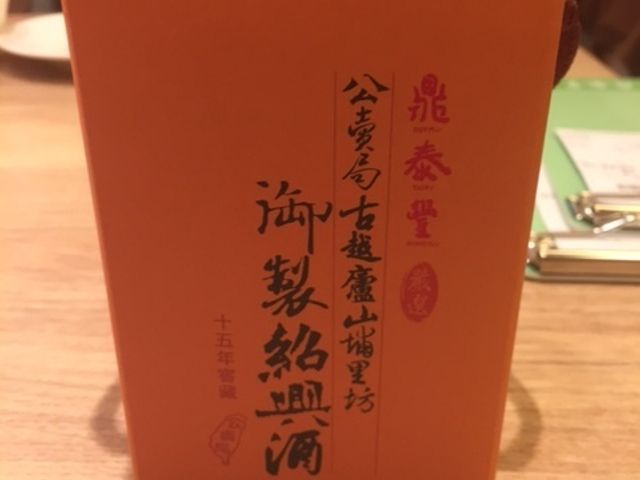 鼎泰豐
嚴選
公賣局古越廬山埔里坊
御製紹興酒
十五年窖藏
公賣局